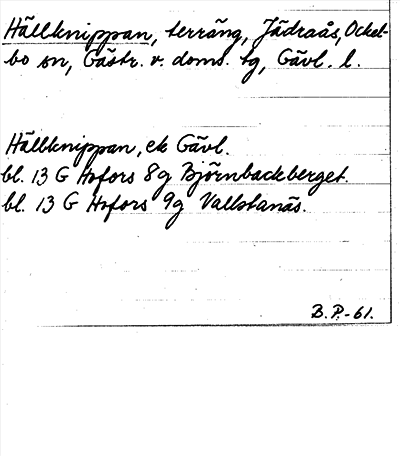 Hällknippan, terräng, Jädraås, Ockel-
bo sn, Gästr. v. doms. tg, Gävl. l.
Hällknippan, ek Gävl.
bl. 13 G Hofors 8g Björnbackberget.
bl. 13 G Hofors 9g Vallstanäs.
B.P.-61.